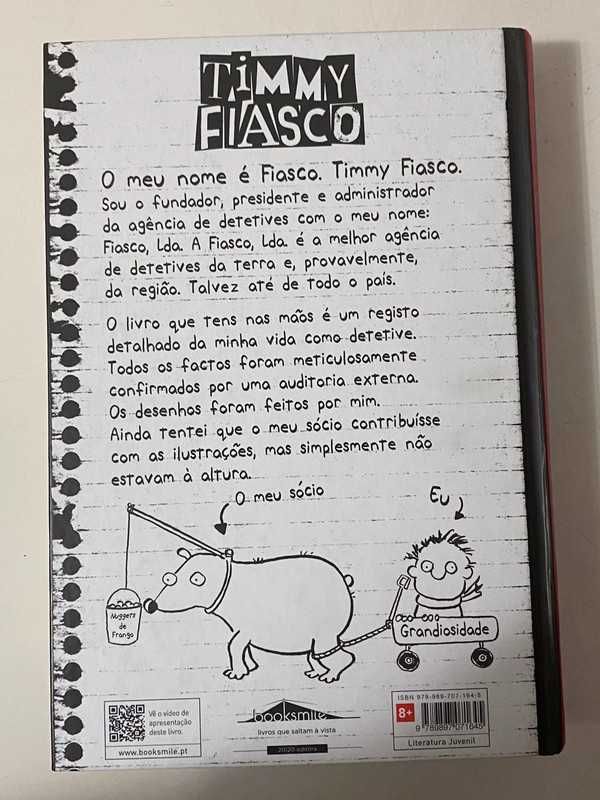 TiMMY
FIASCO
O meu nome é Fiasco. Timmy Fiasco.
Sou o fundador, presidente e administrador
da agência de detetives com o meu nome:
Fiasco, Lda. A Fiasco, Lda. é a melhor agência
de detetives da terra e, provavelmente,
da região. Talvez até de todo o país.
O livro que tens nas mãos é um registo
detalhado da minha vida como detetive.
Todos os factos foram meticulosamente
confirmados por uma auditoria externa.
Os desenhos foram feitos por mim.
Ainda tentei que o meu sócio contribuísse
com as ilustrações, mas simplesmente não
estavam à altura.
O meu sócio
Eu
Nuggets
de
Frango
Grandiosidade
Vê o vídeo de
apresentação
deste livro.
www.booksmile.pt
booksmile
livros que saltam à vista
20|20 editora
ISBN 978-989-707-164-5
8+
9 789897 071645
Literatura Juvenil